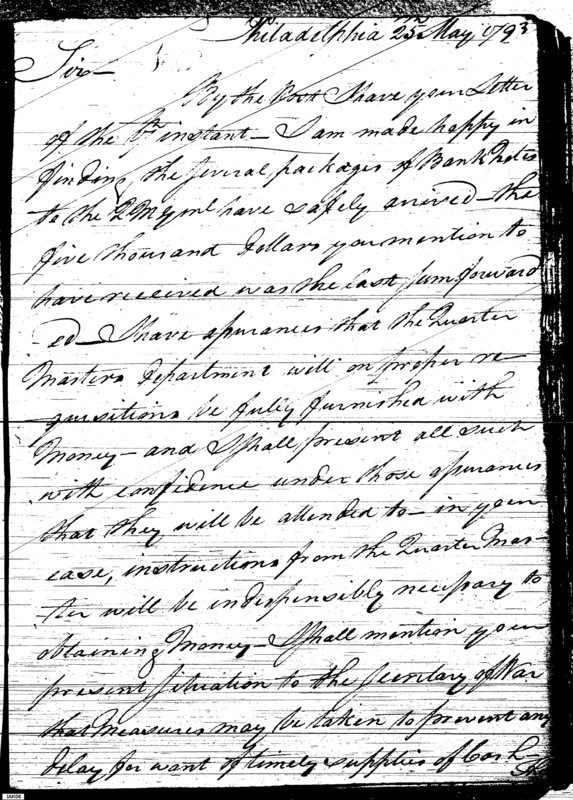 Philadelphia 25th May 1793
Sir —
By the Post I have your Letter
of the instant — I am made happy in
finding the several packages of Bank Notes
to the Q M Genl have safely arrived — the
five thousand Dollars you mention to
have received was the last sum forward
-ed — I have assurances that the Quarter
Masters Department will on proper re-
quisitions be fully furnished with
Money — and I shall present all such
with confidence under those assurances
that they will be attended to — in your
case, instructions from the Quarter Mas-
-ter will be indispensibly necessary to
obtaining Money — I shall mention your
present situation to the Secretary of War
that measures may be taken to prevent any
delay for want of timely supplies of Cash —